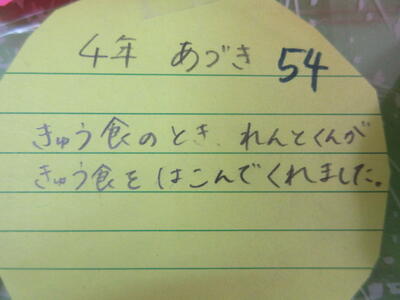 4年 あづき 54
きゅう食のとき、れんとくんが
きゅう食をはこんでくれました。